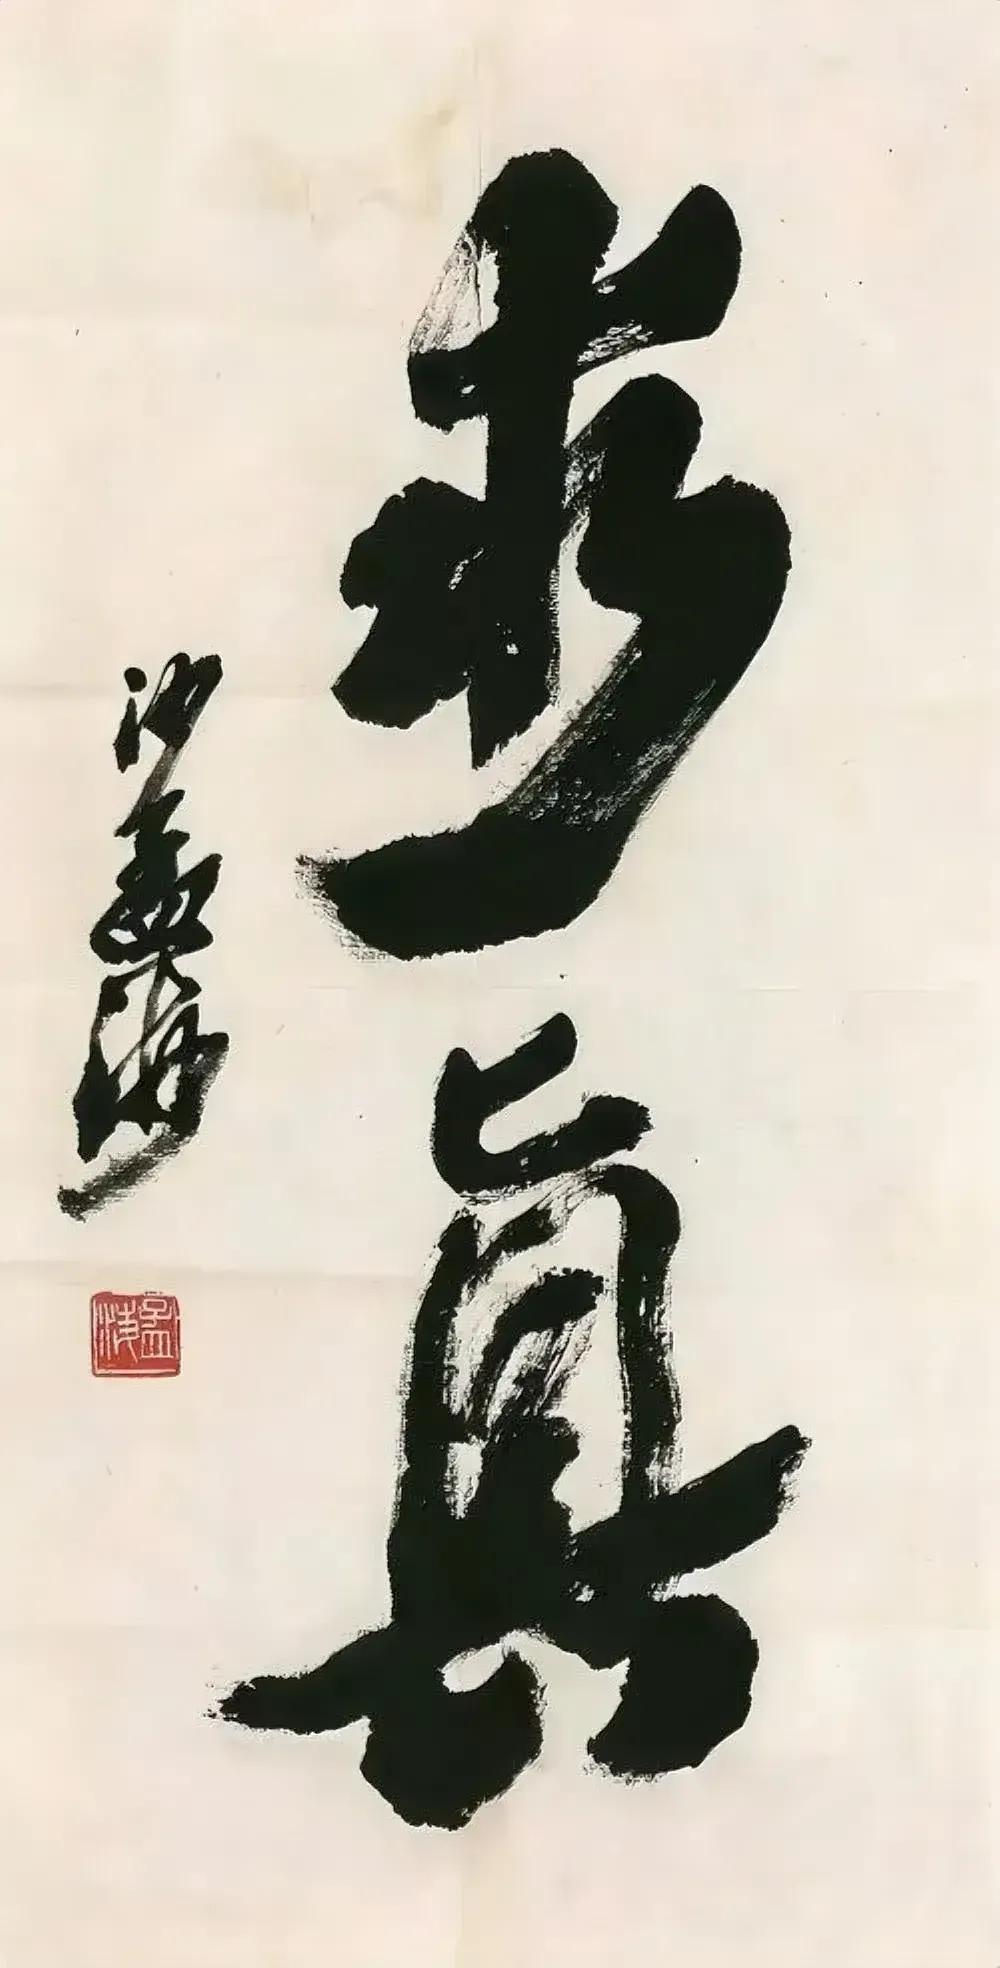 求真
沙孟海
孟海